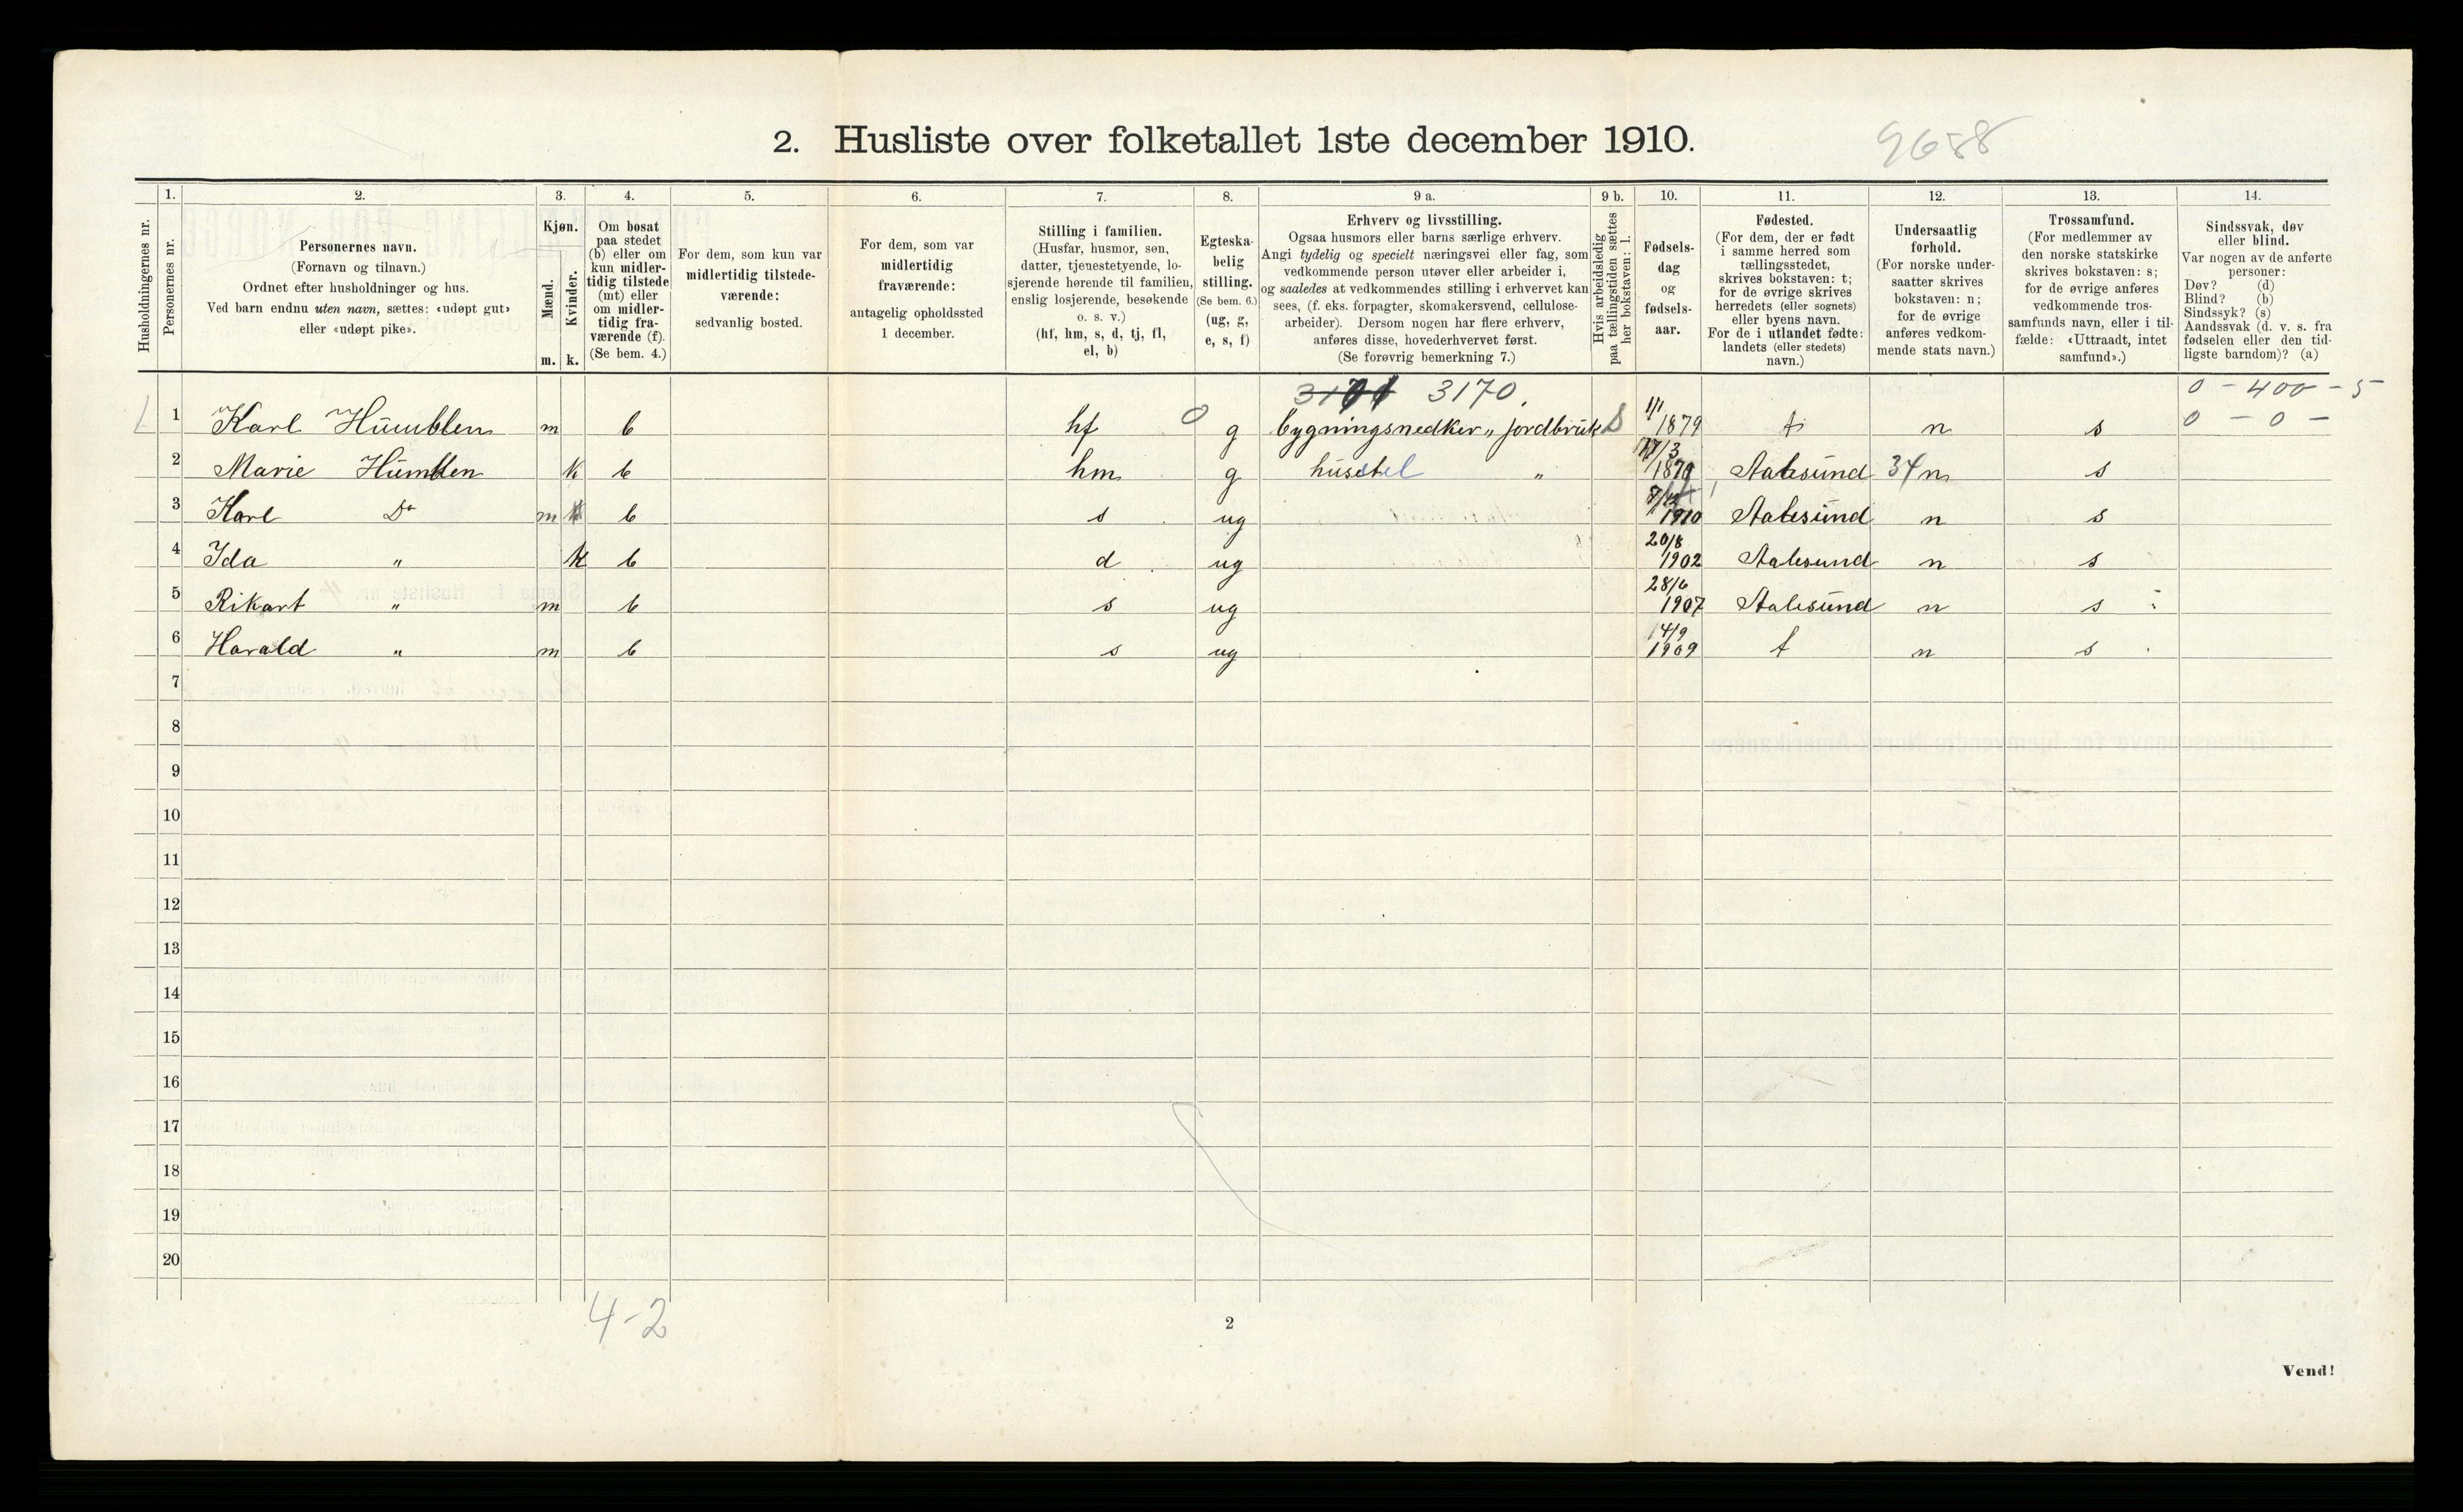 2. Husliste over folketallet 1ste december 1910.
9658
Husholdningernes nr.
1.
Personernes nr.
2.
Personernes navn.
(Fornavn og tilnavn.)
Ordnet efter husholdninger og hus.
Ved barn endnu uten navn, sættes: «udøpt gut»
eller «udøpt pike».
3.
Kjøn.
Mænd.
Kvinder.
m. k.
4.
Om bosat
paa stedet
(b) eller om
kun midler-
tidig tilstede
(mt) eller
om midler-
tidig fra-
værende (f).
(Se bem. 4.)
5.
For dem, som kun var
midlertidig tilstede-
værende:
sedvanlig bosted.
6.
For dem, som var
midlertidig
fraværende:
antagelig opholdssted
1 december.
7.
Stilling i familien.
(Husfar, husmor, søn,
datter, tjenestetyende, lo-
sjerende hørende til familien,
enslig losjerende, besøkende
o. s. v.)
(hf, hm, s, d, tj, fl,
el, b)
8.
Egteska-
belig
stilling.
(Se bem. 6.)
(ug, g,
e, s, f)
9 a.
Erhverv og livsstilling.
Ogsaa husmors eller barns særlige erhverv.
Angi tydelig og specielt næringsvei eller fag, som
vedkommende person utøver eller arbeider i,
og saaledes at vedkommendes stilling i erhvervet kan
sees, (f. eks. forpagter, skomakersvend, cellulose-
arbeider). Dersom nogen har flere erhverv,
anføres disse, hovederhvervet først.
(Se forøvrig bemerkning 7.)
9 b.
Hvis arbeidsledig
paa tællingstiden sættes
her bokstaven: l.
10.
Fødsels-
dag
og
fødsels-
aar.
11.
Fødested.
(For dem, der er født
i samme herred som
tællingsstedet,
skrives bokstaven: t;
for de øvrige skrives
herredets (eller sognets)
eller byens navn.
For de i utlandet fødte:
landets (eller stedets)
navn.)
12.
Undersaatlig
forhold.
(For norske under-
saatter skrives
bokstaven: n;
for de øvrige
anføres vedkom-
mende stats navn.)
13.
Trossamfund.
(For medlemmer av
den norske statskirke
skrives bokstaven: s;
for de øvrige anføres
vedkommende tros-
samfunds navn, eller i til-
fælde: «Uttraadt, intet
samfund».)
14.
Sindssvak, døv
eller blind.
Var nogen av de anførte
personer:
Døv? (d)
Blind? (b)
Sindssyk? (s)
Aandssvak (d. v. s. fra
fødselen eller den tid-
ligste barndom)? (a)
3170. 0 - 400 - 5
1 Karl Humblen m b hf 0 g bygningsnedker „ jordbruk 1/1 1879 t n s 0 - 0 -
2 Marie Humblen k b hm g husstel „ 17/3 1879 Aalesund 34 n s
3 Karl Do m b s ug 1910 Aalesund n s
4 Ida " k b d ug 20/8 1902 Aalesund n s
5 Rikart " m b s ug 28/6 1907 Aalesund n s
6 Harald " m b s ug 14/9 1909 t n s
7
8
9
10
11
12
13
14
15
16
17
18
19
20
4-2
2
Vend!